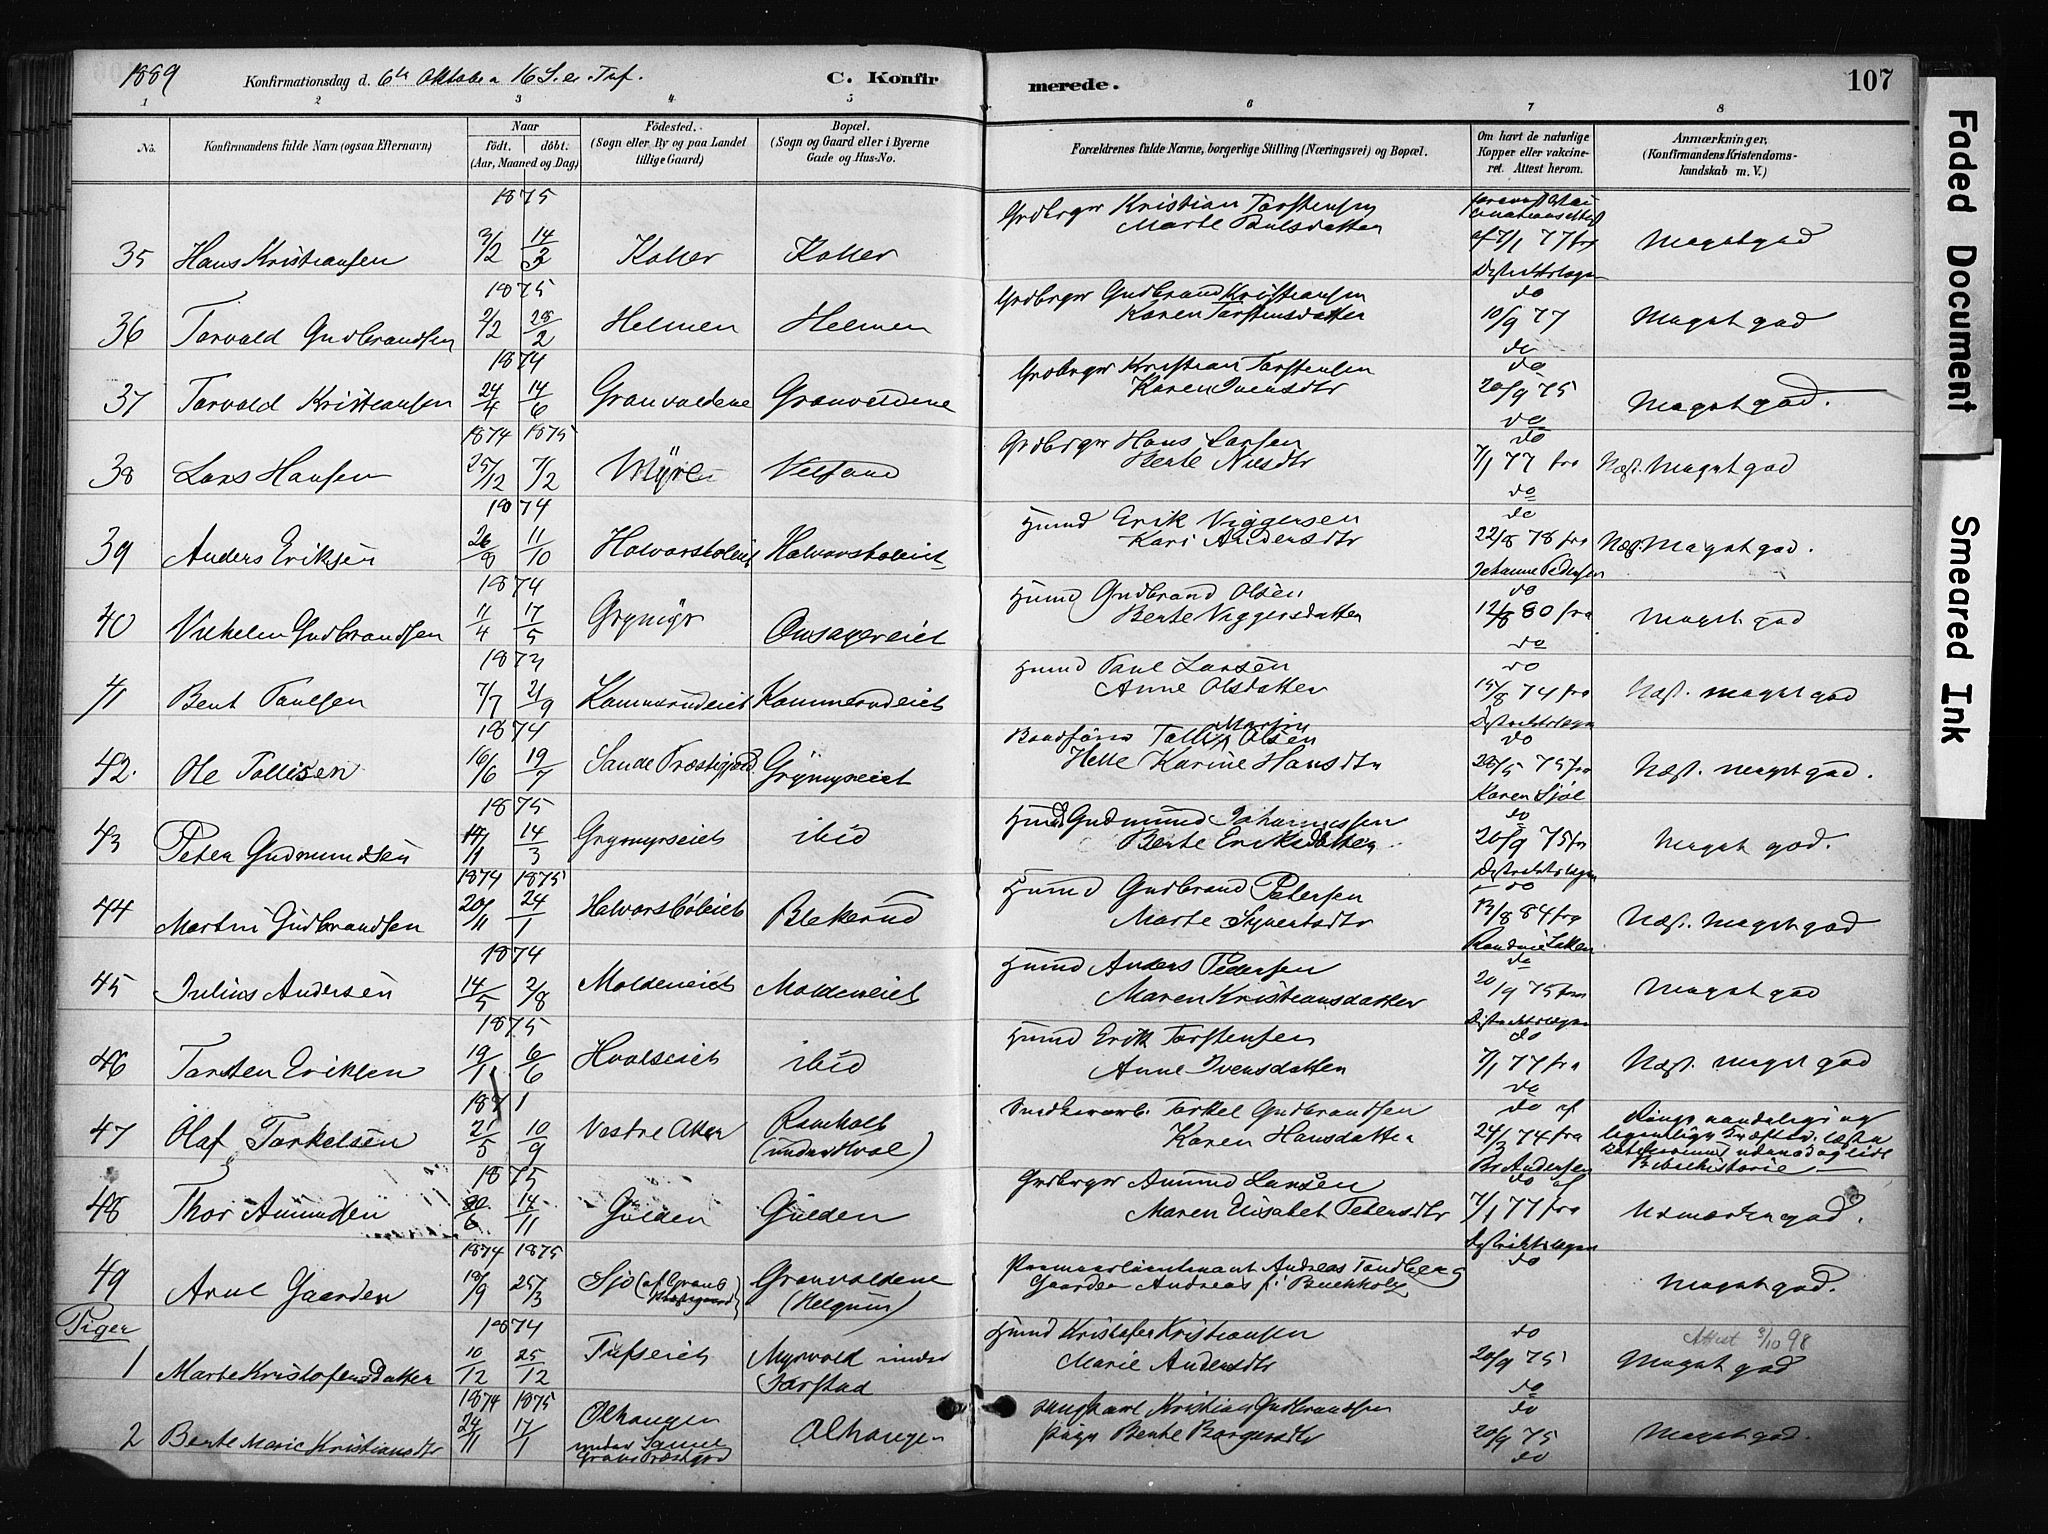 1889 Konfirmationsdag d. 6te Oktober 16 S. e. Tref. C. Konfirmerede. 107
1 2 3 4 5 6 7 8
No. Konfirmandens fulde Navn (ogsaa Efternavn) Naar født. døbt. (Aar, Maaned og Dag) Fødested. (Sogn eller By og paa Landet tillige Gaard) Bopæl. (Sogn og Gaard eller i Byerne Gade og Hus-No. Forældrenes fulde Navne, borgerlige Stilling (Næringsvei) og Bopæl. Om havt de naturlige Kopper eller vakcineret. Attest herom. Anmærkninger, (Konfirmandens Kristendomskundskab m. V.)
1875
35 Hans Kristiansen 3/2 14/3 Koller Koller Grdbrgr Kristian Torstensen
Marte Paulsdatter 7/1 77 fra Distriktslægen Meget god
1875
36 Torvald Gudbrandsen 2/2 28/2 Helmen Helmen Grdbrgr Gudbrand Kristiansen
Karen Torstensdatter do 10/9 77 do Meget god
1874
37 Torvald Kristiansen 24/4 14/6 Granvoldene Granvoldene Grdbrgr Kristian Torstensen
Karen Iversdtr do 20/9 75 do Meget god.
1874 1875
38 Lars Hansen 25/12 7/2 Myre Velsand Grdbrgr Hans Larsen
Berte Nilsdtr do 7/1 77 fra do Næst. Meget god
1874
39 Anders Eriksen 26/8 11/10 Halvorsboleiet Halvorsboleiet Husmd Erik Viggersen
Kari Andersdtr do 22/8 78 fra Johanne Pedersen Næst. Meget god.
1874
40 Vilhelm Gudbrandsen 11/4 17/5 Grymyr Husmd Gudbrand Olsen
Berte Viggersdatter do 12/8 80 fra do Meget god
1873
41 Bent Paulsen 7/7 21/9 Kammerudeiet Kammerudeiet Husmd Paul Larsen
Anne Olsdatter do 15/8 74 fra Distriktslægen Næst. meget god
1874
42. Ole Tollefsen 16/6 19/7 Sande Præstegjeld Grymyreiet Martin Olsen
Helle Karine Hansdtr do 28/5 75 fra Karen Sjøl Næst. meget god.
1875
43 Peter Gudmundsen 14/1 14/3 Grymyrseiet ibid Husmd Gudmund Johannessen
Berte Eriksdatter do 20/9 75 fra Distriktslægen Meget god.
1874 1875
44 Martin Gudbrandsen 20/11 24/1 Halvorsbøleiet Blekerud Husmd Gudbrand Petersen
Marte Syvertsdtr do 13/8 84 fra Næst. Meget god
1874
45 Julius Andersen 14/5 2/8 Moldeneiet Moldeneiet Husmd Anders Pedersen
Maren Kristiansdatter do 20/9 75 fra Distriktslægen Meget god
1875
46 Torsten Eriksen 19/1 6/6 Hvalseiet ibid Husmd Erik Torstensen
Anne Iversdatter do 7/1 77 fra do Næst. meget god
1871
47 Olaf Torkelsen 21/5 10/9 Vestre Aker (under Hval) Snedkerarb. Torkel Gudbrandsen
Karen Hansdatter do af 24/3 74 fra Andersen Bibelhistorie
1875
48 Thor Amundsen 30/6 14/11 Gulden Gulden Grdbrgr Amund Larsen
Maren Elisabet Petersdtr do af 7/1 77 fra Distriktslægen Udmærket god.
1874 1875
49 Arne Gaarder 18/9 25/3 Sjo (af Grans Granvoldene (Helgum) Premierløieutenant Andreas Tandberg
Gaarder Andreas f. Buchholz do Meget god.
Piger
1874
1 Marte Kristofersdatter 10/12 25/12 Tufseiet Myrvold under Jarstad Husmd Kristofer Kristiansen
Marie Andersdtr do 20/9 75 do Attest 3/10 98
Meget god
1874 1875
2 Berte Marie Kristiansdtr 24/11 17/1 Olhaugen under Grans Præstgrd Olhaugen Ungkarl Kristian Gudbrandsen
Pige Berte Borgersdtr do 20/9 75 do Meget god.
Faded Document
Smeared Ink